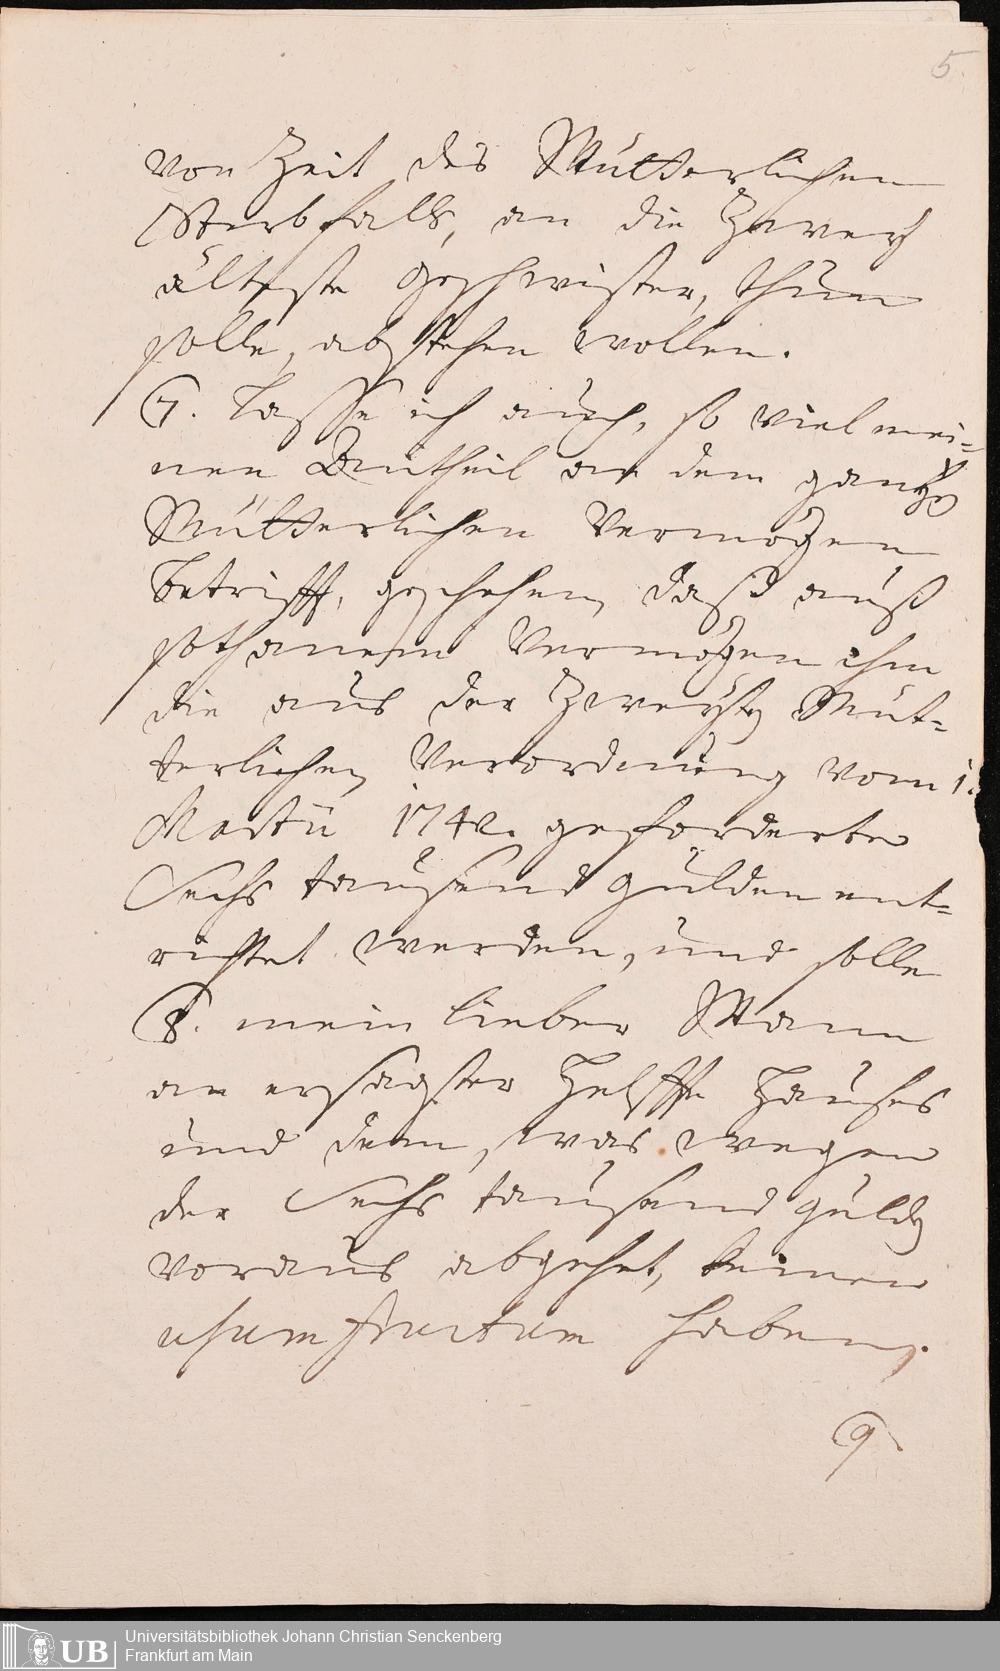 5.
von Zeit des Mütterlichen
Sterbfalls, an die Zwey
älteste Geschwister, thun
solle, abstehen wollen.
7. Lasse ich auch, so viel mei-
nen Antheil an dem gantzen
Mütterlichen Vermögen
betrifft, geschehen, daß auß
sothanem Vermögen ihm
die aus der Zweyten Müt-
terlichen Verordnung vom 1.
Martii 1742. geforderte
Sechs tausend Gulden ent-
richtet werden, und solle
8. mein lieber Mann
an ersagter Helffte Hauses
und dem, was wegen
der Sechs tausend Gulden
voraus abgehet, keinen
usumfructum haben.
9.
Universitätsbibliothek Johann Christian Senckenberg
Frankfurt am Main
UB